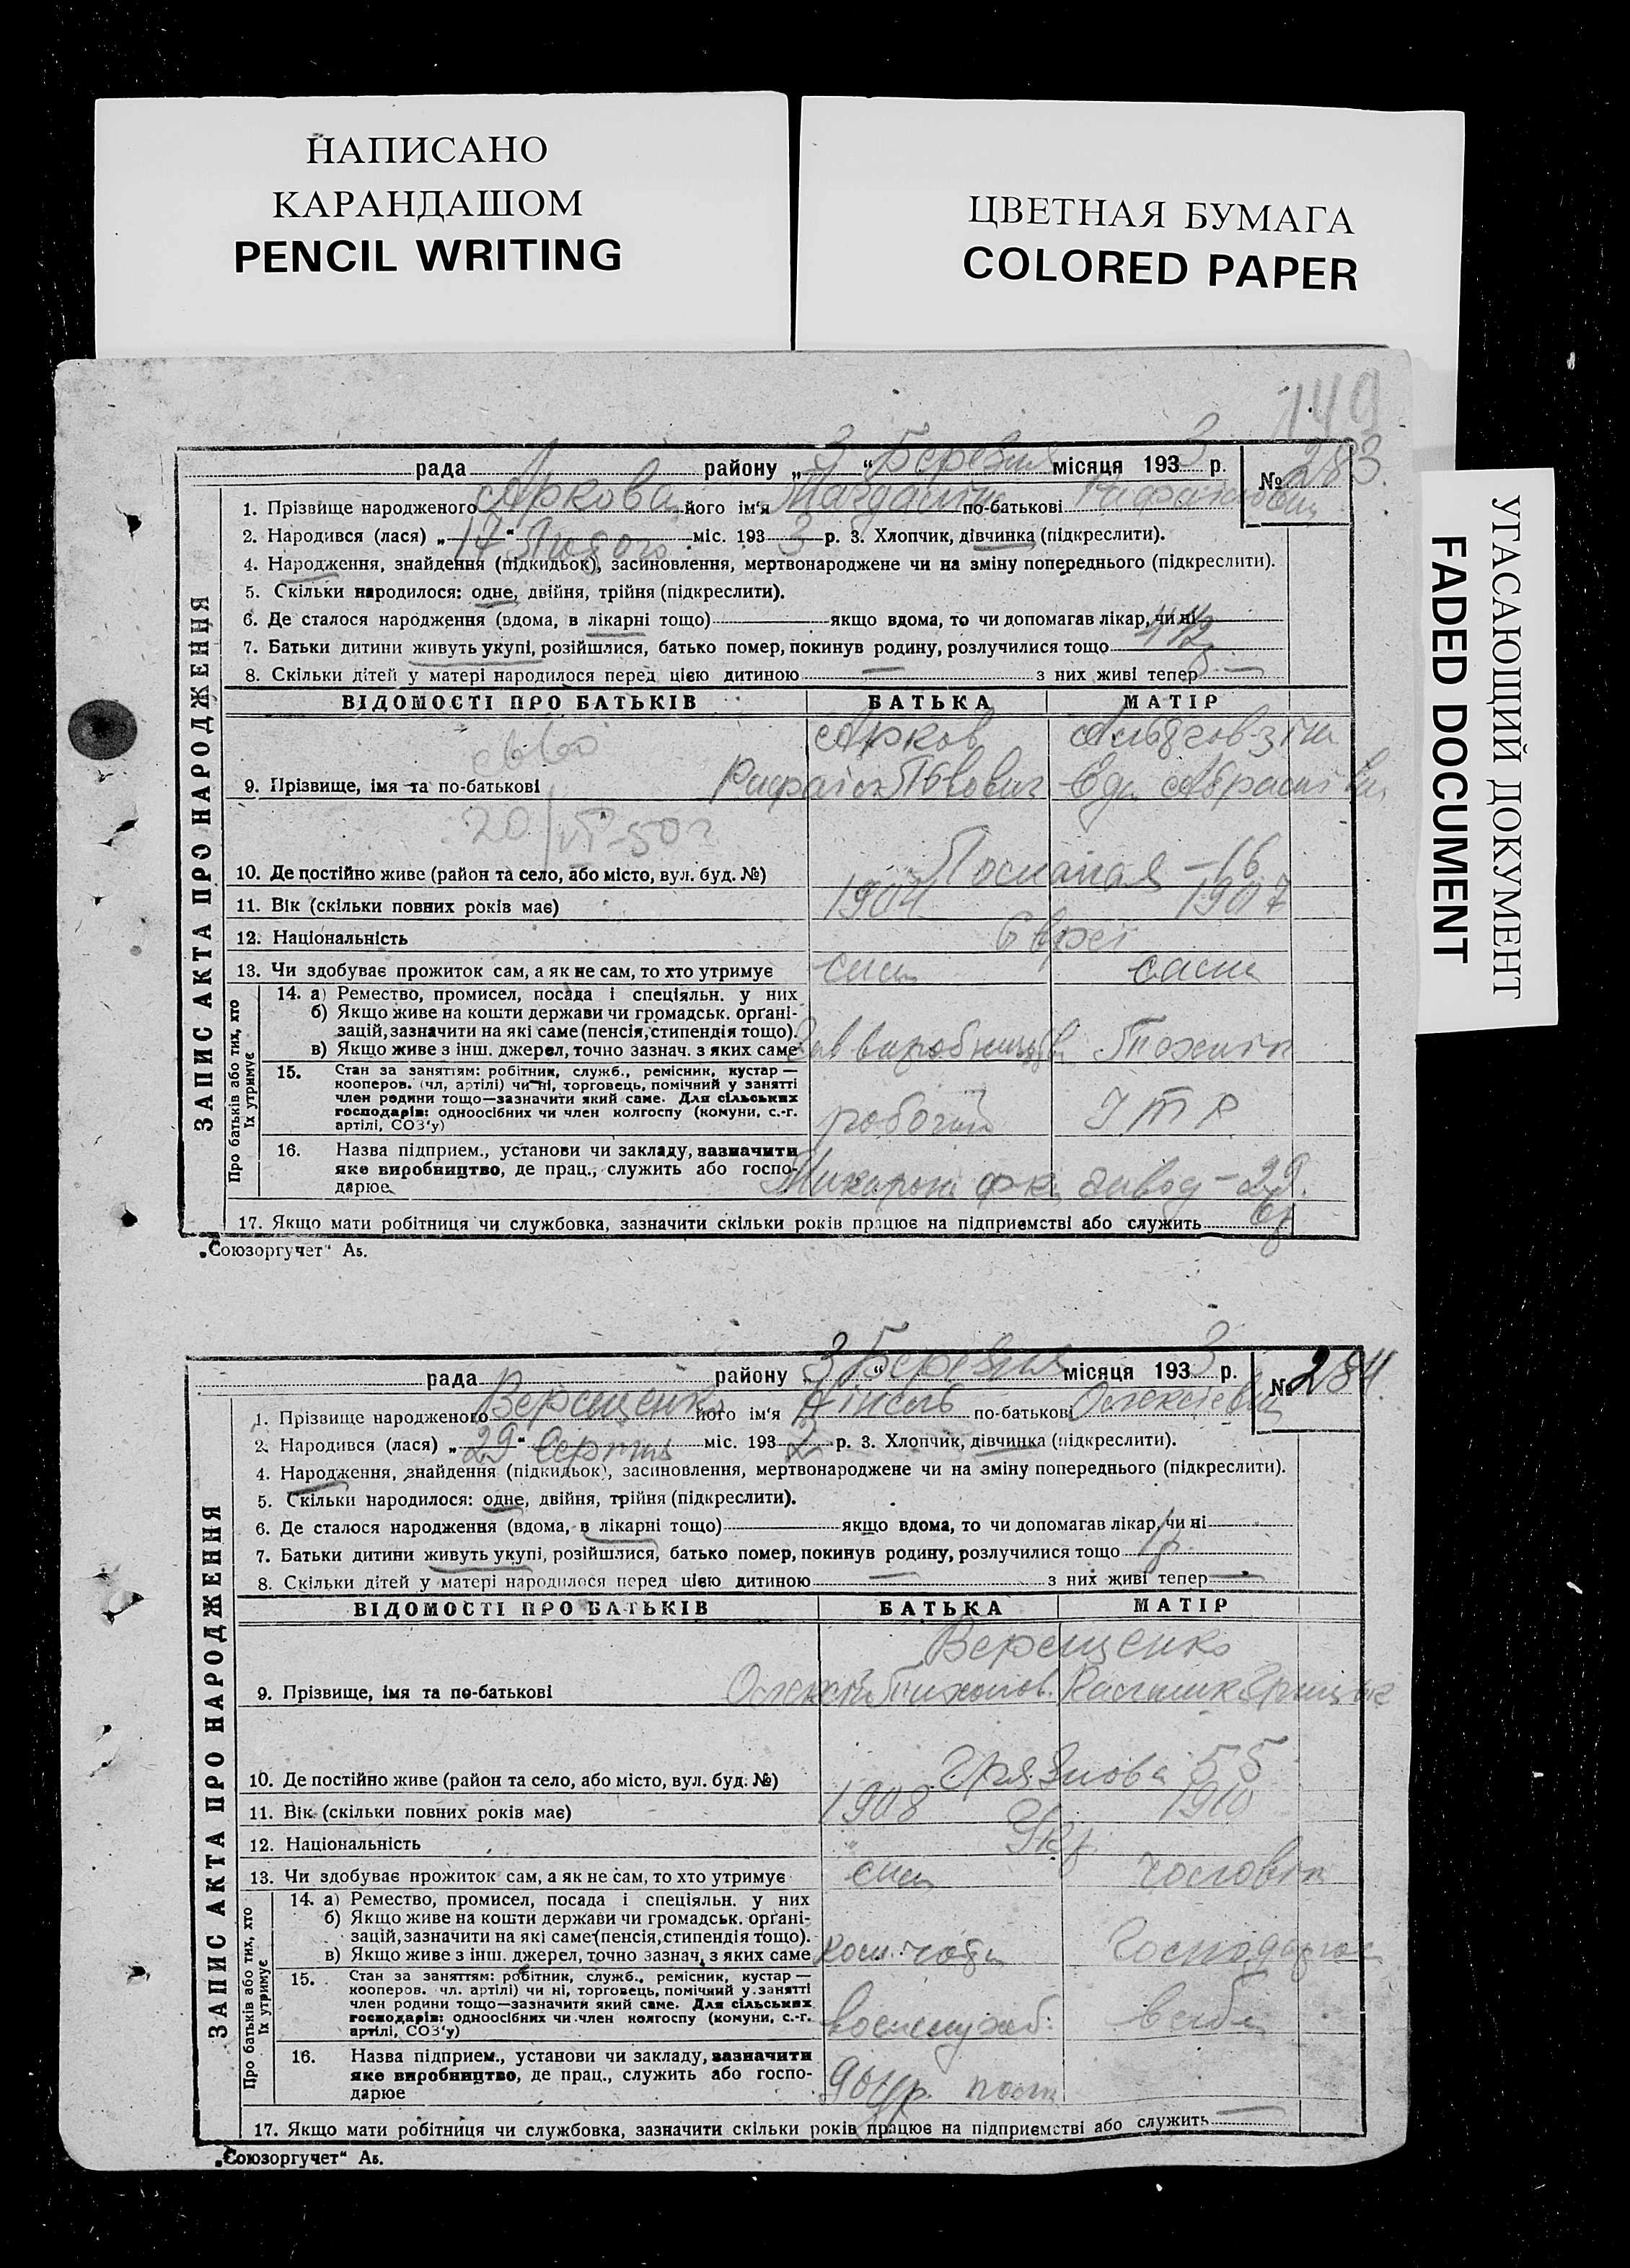 НАПИСАНО
КАРАНДАШОМ
PENCIL WRITING
ЦВЕТНАЯ БУМАГА
COLORED PAPER
УГАСАЮЩИЙ ДОКУМЕНТ
FADED DOCUMENT
149
рада району „ 3 “ Березня місяця 193 3 р. № 283.
1. Прізвище народженого Аркова його ім'я Магдаліна по-батькові
2. Народився (лася) „ 17 “ Лютого міс. 193 3 р. 3. Хлопчик, дівчинка (підкреслити).
4. Народження, знайдення (підкидьок), засиновлення, мертвонароджене чи на зміну попереднього (підкреслити).
5. Скільки народилося: одне, двійня, трійня (підкреслити).
6. Де сталося народження (вдома, в лікарні тощо) якщо вдома, то чи допомагав лікар, чи ні
7. Батьки дитини живуть укупі, розійшлися, батько помер, покинув родину, розлучилися тощо
8. Скільки дітей у матері народилося перед цією дитиною — з них живі тепер —
ЗАПИС АКТА ПРО НАРОДЖЕННЯ
ВІДОМОСТІ ПРО БАТЬКІВ БАТЬКА МАТІР
Арков
9. Прізвище, імя та по-батькові Рафаіл Львович Еда
20/VI-50г
10. Де постійно живе (район та село, або місто, вул. буд. №) 16
11. Вік (скільки повних років має) 1904 1907
12. Національність Євреї
13. Чи здобуває прожиток сам, а як не сам, то хто утримує сам сама
Про батьків або тих, хто їх утримує
14. а) Ремество, промисел, посада і спеціяльн. у них
б) Якщо живе на кошти держави чи громадськ. орґані-
зацій, зазначити на які саме (пенсія, стипендія тощо).
в) Якщо живе з інш. джерел, точно зазнач. з яких саме Зав виробництв
15. Стан за заняттям: робітник, служб., ремісник, кустар —
кооперов. (чл, артілі) чи ні, торговець, помічний у занятті
член родини тощо—зазначити який саме. Для сільських
господарів: одноосібних чи член колгоспу (комуни, с.-г.
артілі, СОЗ'у) робочий ІТР
16. Назва підприєм., установи чи закладу, зазначити
яке виробництво, де прац., служить або господарює Макарон ф-ка завод - 29.
17. Якщо мати робітниця чи службовка, зазначити скільки років працює на підприємстві або служить 6р
„Союзоргучет“ А5.
рада району „ 3 “ Березня місяця 193 3 р. № 284.
1. Прізвище народженого Верещенко його ім'я Нінель по-батькові Олексіевна
2. Народився (лася) „ 29 “ Серпня міс. 193 2 р. 3. Хлопчик, дівчинка (підкреслити).
4. Народження, знайдення (підкидьок), засиновлення, мертвонароджене чи на зміну попереднього (підкреслити).
5. Скільки народилося: одне, двійня, трійня (підкреслити).
6. Де сталося народження (вдома, в лікарні тощо) якщо вдома, то чи допомагав лікар, чи ні
7. Батьки дитини живуть укупі, розійшлися, батько помер, покинув родину, розлучилися тощо 1р.
8. Скільки дітей у матері народилося перед цією дитиною — з них живі тепер —
ЗАПИС АКТА ПРО НАРОДЖЕННЯ
ВІДОМОСТІ ПРО БАТЬКІВ БАТЬКА МАТІР
Верещенко
9. Прізвище, імя та по-батькові Олексій Тихонов.
10. Де постійно живе (район та село, або місто, вул. буд. №) Грязнова 55
11. Вік (скільки повних років має) 1908 1910
12. Національність " Укр
13. Чи здобуває прожиток сам, а як не сам, то хто утримує сам чоловік
Про батьків або тих, хто їх утримує
14. а) Ремество, промисел, посада і спеціяльн. у них
б) Якщо живе на кошти держави чи громадськ. орґані-
зацій, зазначити на які саме (пенсія, стипендія тощо).
в) Якщо живе з інш. джерел, точно зазнач, з яких саме ком. роти
15. Стан за заняттям: робітник, служб., ремісник, кустар —
кооперов. чл. артілі) чи ні, торговець, помічний у занятті
член родини тощо—зазначити який саме. Для сільських
господарів: одноосібних чи член колгоспу (комуни, с.-г.
артілі, СОЗ'у) военслужб.
16. Назва підприєм., установи чи закладу, зазначити
яке виробництво, де прац., служить або господарює 90
17. Якщо мати робітниця чи службовка, зазначити скільки років працює на підприємстві або служить —
„Союзоргучет“ А5.